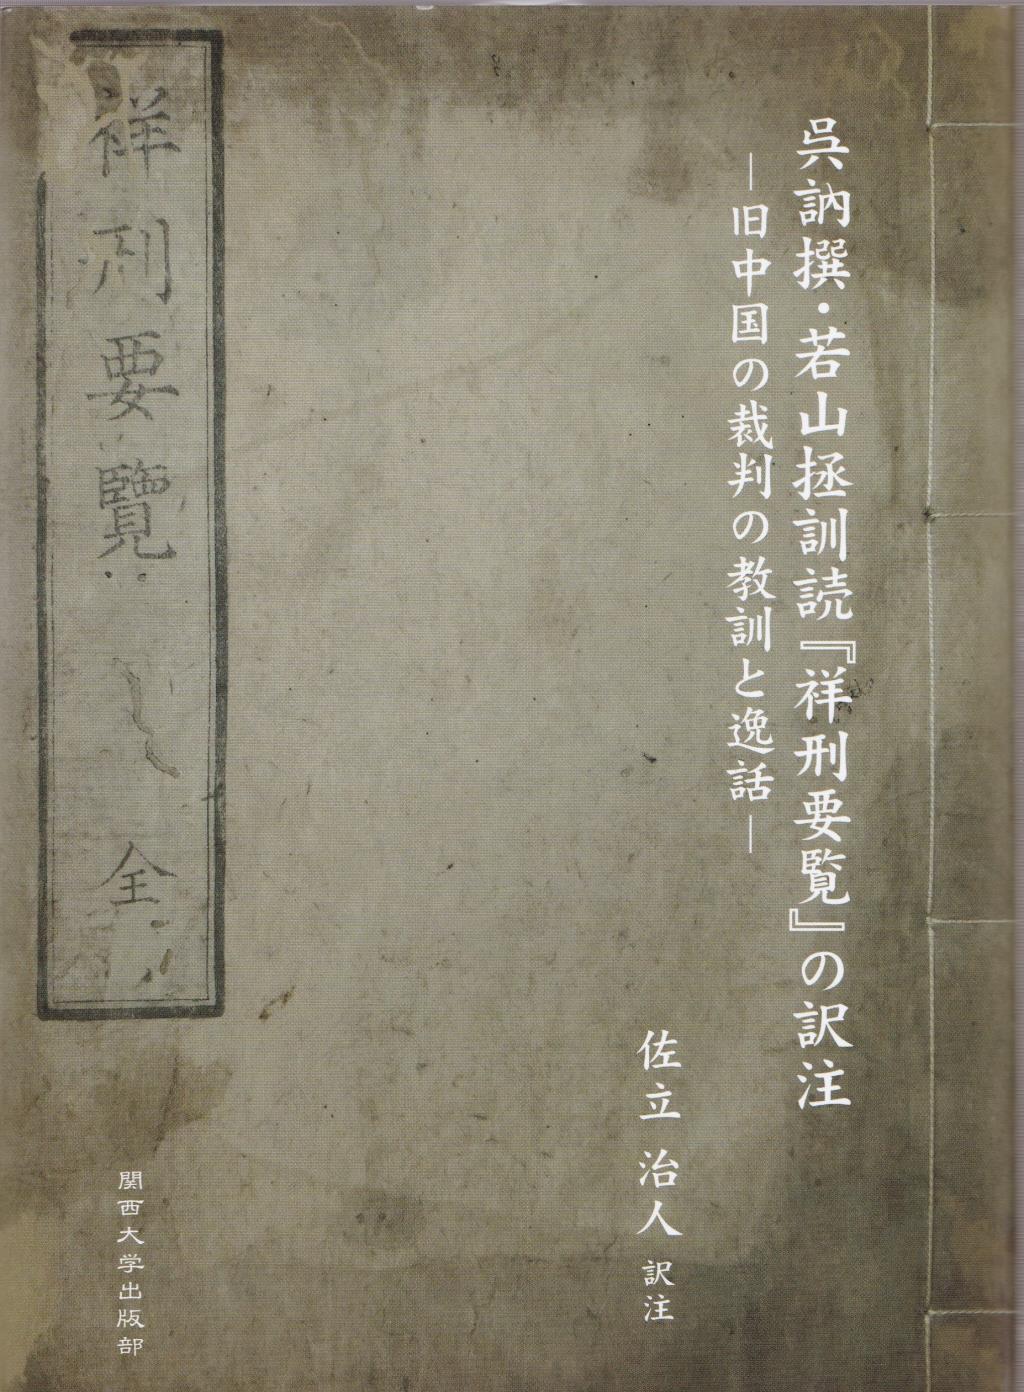 呉訥撰・若山拯訓読『祥刑要覧』の訳注
―旧中国の裁判の教訓と逸話―
佐立治人 訳注
祥刑要覽 全
関西大学出版部